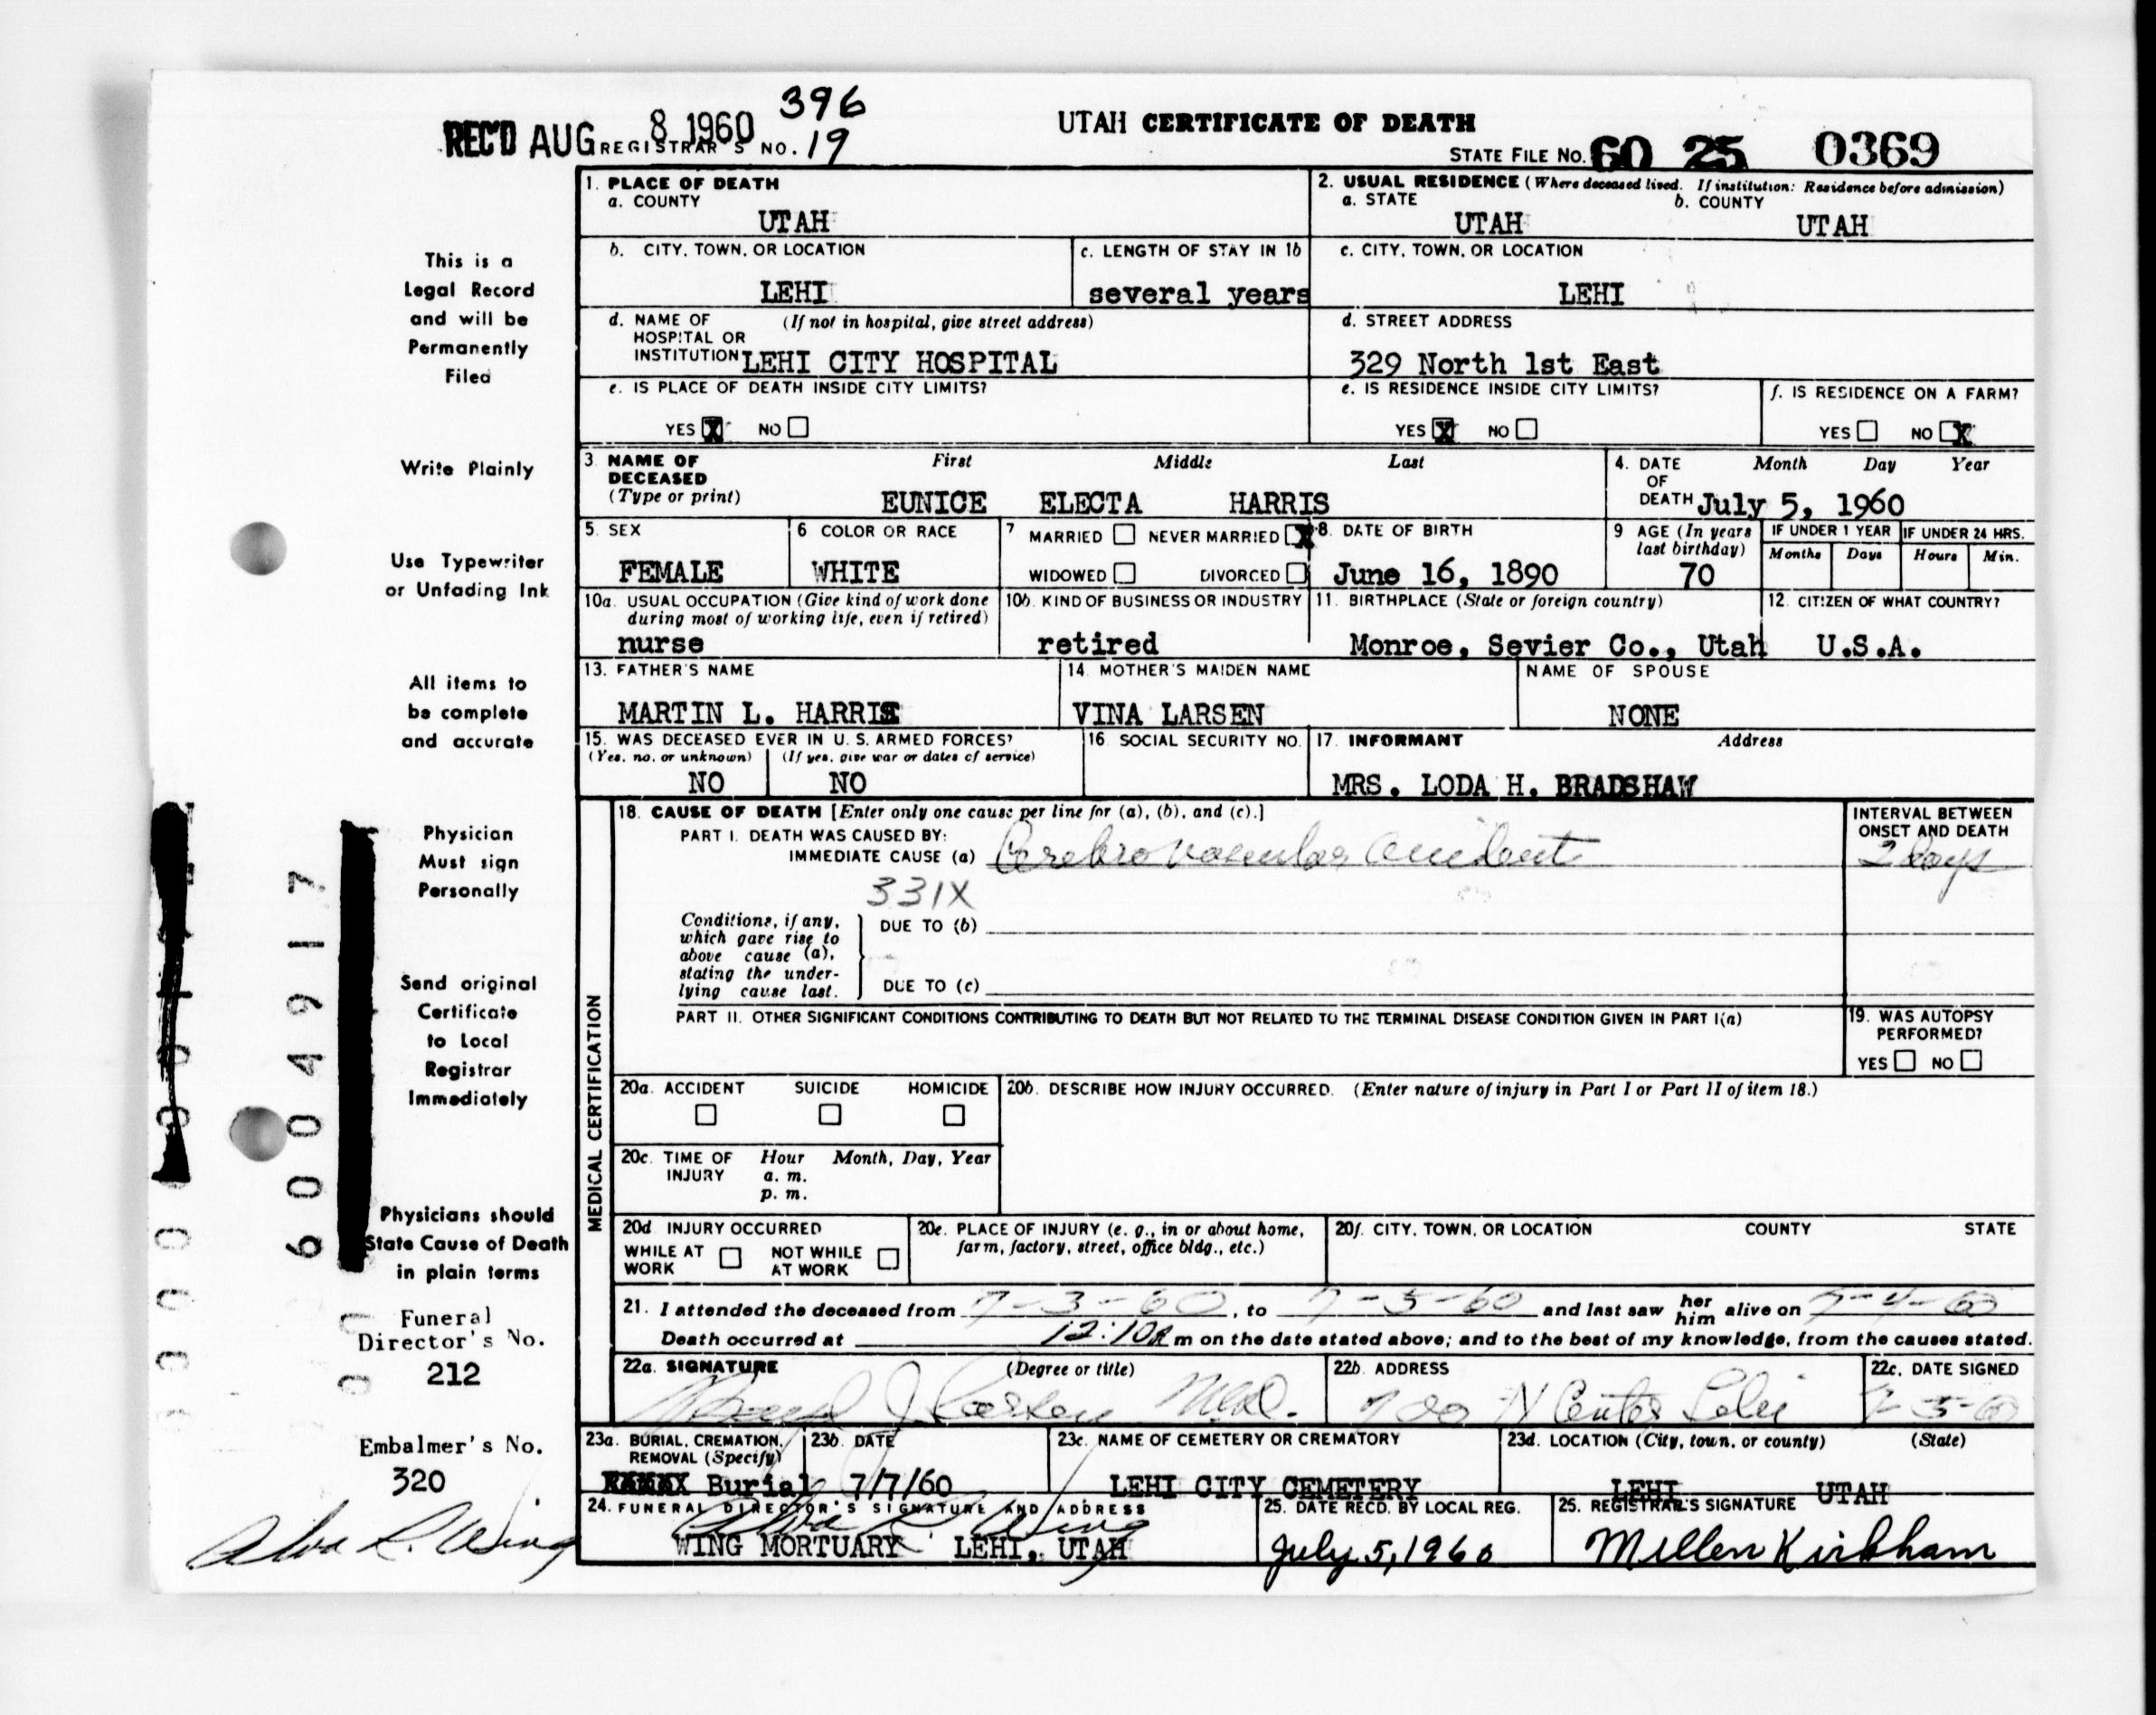 396
REC'D AUG 8 1960 REGISTRAR'S NO. 19
UTAH CERTIFICATE OF DEATH
STATE FILE NO. 60 25 0369
This is a
Legal Record
and will be
Permanently
Filed
Write Plainly
Use Typewriter
or Unfading Ink
All items to
be complete
and accurate
Physician
Must sign
Personally
Send original
Certificate
to Local
Registrar
Immediately
Physicians should
State Cause of Death
in plain terms
Funeral
Director's No.
212
Embalmer's No.
320
Alva R. Wing
6004917
1. PLACE OF DEATH
a. COUNTY
UTAH
2. USUAL RESIDENCE (Where deceased lived. If institution: Residence before admission)
a. STATE b. COUNTY
UTAH UTAH
b. CITY, TOWN, OR LOCATION
LEHI
c. LENGTH OF STAY IN 1b
several years
c. CITY, TOWN, OR LOCATION
LEHI
d. NAME OF (If not in hospital, give street address)
HOSPITAL OR
INSTITUTION LEHI CITY HOSPITAL
d. STREET ADDRESS
329 North 1st East
e. IS PLACE OF DEATH INSIDE CITY LIMITS?
YES X NO
e. IS RESIDENCE INSIDE CITY LIMITS?
YES X NO
f. IS RESIDENCE ON A FARM?
YES NO X
3. NAME OF DECEASED First Middle Last
(Type or print) EUNICE ELECTA HARRIS
4. DATE Month Day Year
OF
DEATH July 5, 1960
5. SEX
FEMALE
6 COLOR OR RACE
WHITE
7 MARRIED NEVER MARRIED X
WIDOWED DIVORCED
8. DATE OF BIRTH
June 16, 1890
9 AGE (In years
last birthday)
70
IF UNDER 1 YEAR IF UNDER 24 HRS.
Months Days Hours Min.
10a. USUAL OCCUPATION (Give kind of work done
during most of working life, even if retired)
nurse
10b. KIND OF BUSINESS OR INDUSTRY
retired
11. BIRTHPLACE (State or foreign country)
Monroe, Sevier Co., Utah
12. CITIZEN OF WHAT COUNTRY?
U.S.A.
13. FATHER'S NAME
MARTIN L. HARRIS
14. MOTHER'S MAIDEN NAME
VINA LARSEN
NAME OF SPOUSE
NONE
15. WAS DECEASED EVER IN U. S. ARMED FORCES?
(Yes, no, or unknown) (If yes, give war or dates of service)
NO NO
16. SOCIAL SECURITY NO.
17. INFORMANT Address
MRS. LODA H. BRADSHAW
MEDICAL CERTIFICATION
18. CAUSE OF DEATH [Enter only one cause per line for (a), (b), and (c).]
PART I. DEATH WAS CAUSED BY:
IMMEDIATE CAUSE (a) Cerebro vascular accident
INTERVAL BETWEEN
ONSET AND DEATH
2 days
331X
Conditions, if any,
which gave rise to
above cause (a),
stating the under-
lying cause last.
DUE TO (b)
DUE TO (c)
PART II. OTHER SIGNIFICANT CONDITIONS CONTRIBUTING TO DEATH BUT NOT RELATED TO THE TERMINAL DISEASE CONDITION GIVEN IN PART I(a)
19. WAS AUTOPSY
PERFORMED?
YES NO
20a. ACCIDENT SUICIDE HOMICIDE
20b. DESCRIBE HOW INJURY OCCURRED. (Enter nature of injury in Part I or Part II of item 18.)
20c. TIME OF Hour Month, Day, Year
INJURY a. m.
p. m.
20d INJURY OCCURRED
WHILE AT WORK NOT WHILE AT WORK
20e. PLACE OF INJURY (e. g., in or about home,
farm, factory, street, office bldg., etc.)
20f. CITY, TOWN, OR LOCATION COUNTY STATE
21. I attended the deceased from 7-3-60, to 7-5-60 and last saw her him alive on 7-4-60
Death occurred at 12:10 a m on the date stated above; and to the best of my knowledge, from the causes stated.
22a. SIGNATURE (Degree or title)
J Larsen M.D.
22b. ADDRESS
700 N Center Lehi
22c. DATE SIGNED
7-5-60
23a. BURIAL, CREMATION,
REMOVAL (Specify)
Burial
23b. DATE
7/7/60
23c. NAME OF CEMETERY OR CREMATORY
LEHI CITY CEMETERY
23d. LOCATION (City, town, or county) (State)
LEHI UTAH
24. FUNERAL DIRECTOR'S SIGNATURE AND ADDRESS
Alva R. Wing
WING MORTUARY LEHI, UTAH
25. DATE RECD. BY LOCAL REG.
July 5, 1960
25. REGISTRAR'S SIGNATURE
Millen Kirkham